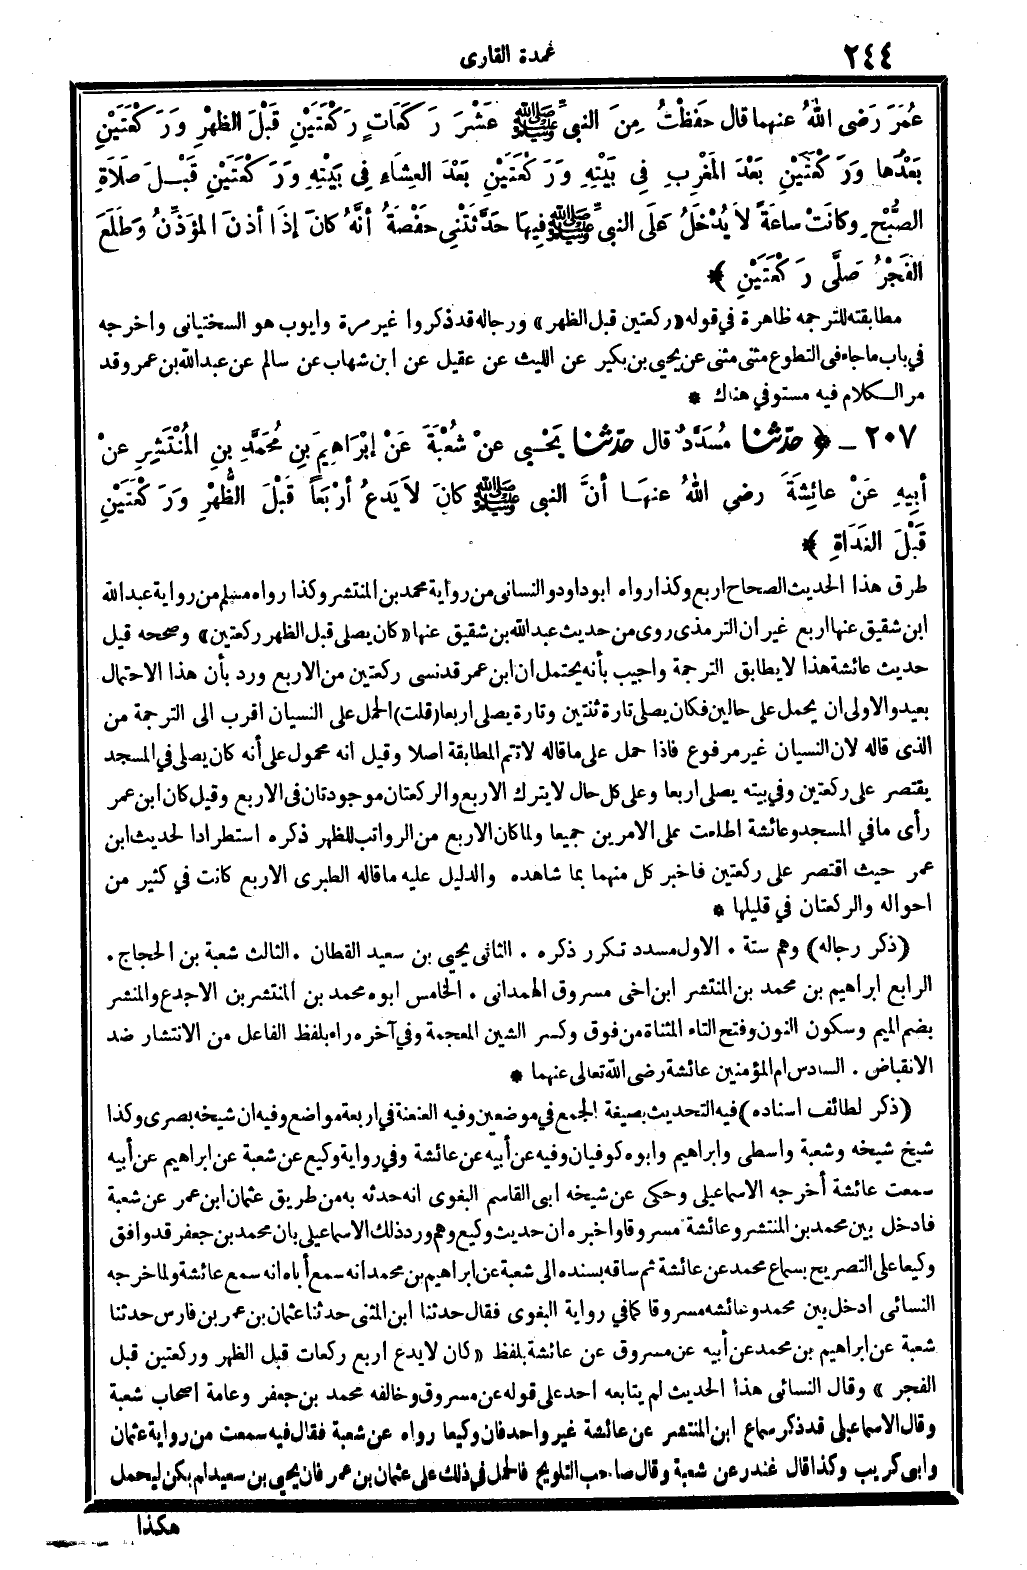 ٢٤٤
عمدة القارى
عُمَرَ رَضى اللهُ عنهما قال حَفِظْتُ مِنَ النبىِّ ﷺ عَشْرَ رَكَعَاتٍ رَكْعَتَيْنِ قَبْلَ الظهْرِ وَرَكْعَتَيْنِ
بَعْدُهَا وَرَكْعَتَيْنِ بَعْدَ المَغْرِبِ فى بَيْتِهِ وَرَكْعَتَيْنِ بَعْدَ العِشَاءِ فى بَيْتِهِ وَرَكْعَتَيْنِ قَبْلَ صَلَاةِ
الصُّبْحِ وكانَتْ ساعَةً لاَ يُدْخَلُ عَلَى النبىِّ ﷺ فِيها حَدَّثَتْنِى حَفْصَةُ أنَّهُ كانَ إذَا أذنَ المُؤذِّنُ وَطَلَعَ
الفَجْرُ صَلَّى رَكْعَتَيْنِ ﴾ *
مطابقته للترجمه ظاهرة في قوله «ركعتين قبل الظهر» ورجاله قد ذكروا غير مرة وايوب هو السختيانى واخرجه
في باب ماجاء فى التطوع مثنى مثنى عن يحيى بن بكير عن الليث عن عقيل عن ابن شهاب عن سالم عن عبد الله بن عمر وقد
مر الكلام فيه مستوفي هناك *
٢٠٧ - ﴿ حَدَّثَنَا مُسَدَّدٌ قال حَدَّثَنَا يَحْيى عنْ شُعْبَةَ عَنْ إبْرَاهِيمَ بنِ مُحَمَّدِ بنِ المُنْتَشِرِ عنْ
أبِيهِ عَنْ عائِشَةَ رضي اللهُ عنهَا أنَّ النبى ﷺ كانَ لاَ يَدعُ أرْبَعاً قَبْلَ الظُّهْرِ وَرَكْعَتَيْنِ
قَبْلَ الغَدَاةِ ﴾ *
طرق هذا الحديث الصحاح اربع وكذا رواه ابوداود والنسائى من رواية محمد بن المنتشر وكذا رواه مسلم من رواية عبدالله
ابن شقيق عنها اربع غير ان الترمذى روى من حديث عبدالله بن شقيق عنها «كان يصلى قبل الظهر ركعتين» وصححه قيل
حديث عائشة هذا لا يطابق الترجمة واجيب بأنه يحتمل ان ابن عمر قدنسى ركعتين من الاربع ورد بأن هذا الاحتمال
بعيد والاولى ان يحمل على حالين فكان يصلى تارة ثنتين وتارة يصلى اربعا (قلت) الحمل على النسيان اقرب الى الترجمة من
الذى قاله لان النسيان غير مرفوع فاذا حمل على ماقاله لاتتم المطابقة اصلا وقيل انه محمول على أنه كان يصلى في المسجد
يقتصر على ركعتين وفي بيته يصلى اربعا وعلى كل حال لا يترك الاربع والركعتان موجودتان فى الاربع وقيل كان ابن عمر
رأى مافي المسجد وعائشة اطلعت على الامرين جميعا ولما كان الاربع من الرواتب للظهر ذكره استطرادا لحديث ابن
عمر حيث اقتصر على ركعتين فاخبر كل منهما بما شاهده والدليل عليه ماقاله الطبرى الاربع كانت في كثير من
احواله والركعتان في قليلها *
(ذكر رجاله) وهم ستة . الاول مسدد تكرر ذكره . الثانى يحيى بن سعيد القطان . الثالث شعبة بن الحجاج .
الرابع ابراهيم بن محمد بن المنتشر ابن اخى مسروق الهمدانى . الخامس ابوه محمد بن المنتشر بن الاجدع والمنشر
بضم الميم وسكون النون وفتح التاء المثناة من فوق وكسر الشين المعجمة وفي آخره راء بلفظ الفاعل من الانتشار ضد
الانقباض . السادس ام المؤمنين عائشة رضى الله تعالى عنهما *
(ذكر لطائف اسناده) فيه التحديث بصيغة الجمع في موضعين وفيه العنعنة في اربعة مواضع وفيه ان شيخه بصرى وكذا
شيخ شيخه وشعبة واسطى وابراهيم وابوه كوفيان وفيه عن أبيه عن عائشة وفي رواية وكيع عن شعبة عن ابراهيم عن أبيه
سمعت عائشة أخرجه الاسماعيلى وحكى عن شيخه ابى القاسم البغوى انه حدثه به من طريق عثمان ابن عمر عن شعبة
فادخل بين محمد بن المنتشر وعائشة مسروقا واخبره ان حديث وكيع وهم ورد ذلك الاسماعيلى بان محمد بن جعفر قد وافق
وكيعا على التصريح بسماع محمد عن عائشة ثم ساقه بسنده الى شعبة عن ابراهيم بن محمد انه سمع أباه انه سمع عائشة ولما خرجه
النسائى ادخل بين محمد وعائشه مسروقا كما في رواية البغوى فقال حدثنا ابن المثنى حدثنا عثمان بن عمر بن فارس حدثنا
شعبة عن ابراهيم بن محمد عن أبيه عن مسروق عن عائشة بلفظ «كان لا يدع اربع ركعات قبل الظهر وركعتين قبل
الفجر» وقال النسائى هذا الحديث لم يتابعه احد على قوله عن مسروق وخالفه محمد بن جعفر وعامة اصحاب شعبة
وقال الاسماعيلى قد ذكر سماع ابن المنتشر عن عائشة غير واحد فان وكيعا رواه عن شعبة فقال فيه سمعت من رواية عثمان
وابى كريب وكذا قال غندر عن شعبة وقال صاحب التلويح فالحمل في ذلك على عثمان بن عمر فان يحيى بن سعيد لم يكن ليحمل
هكذا